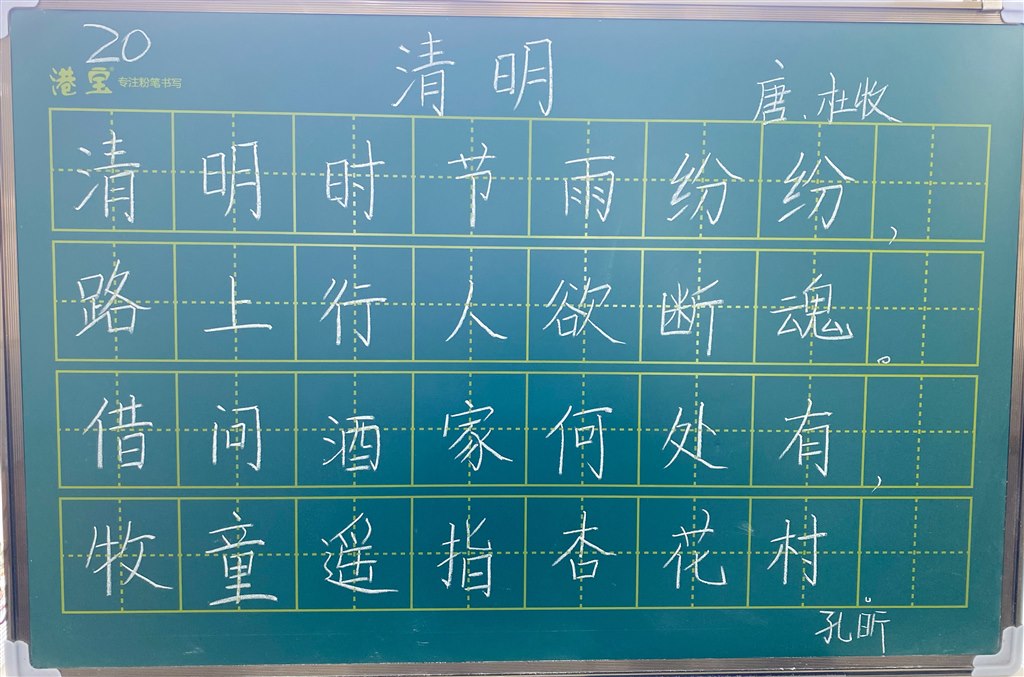 20
港宝 专注粉笔书写
清明
唐、杜牧
清明时节雨纷纷，
路上行人欲断魂。
借问酒家何处有，
牧童遥指杏花村。
孔昕